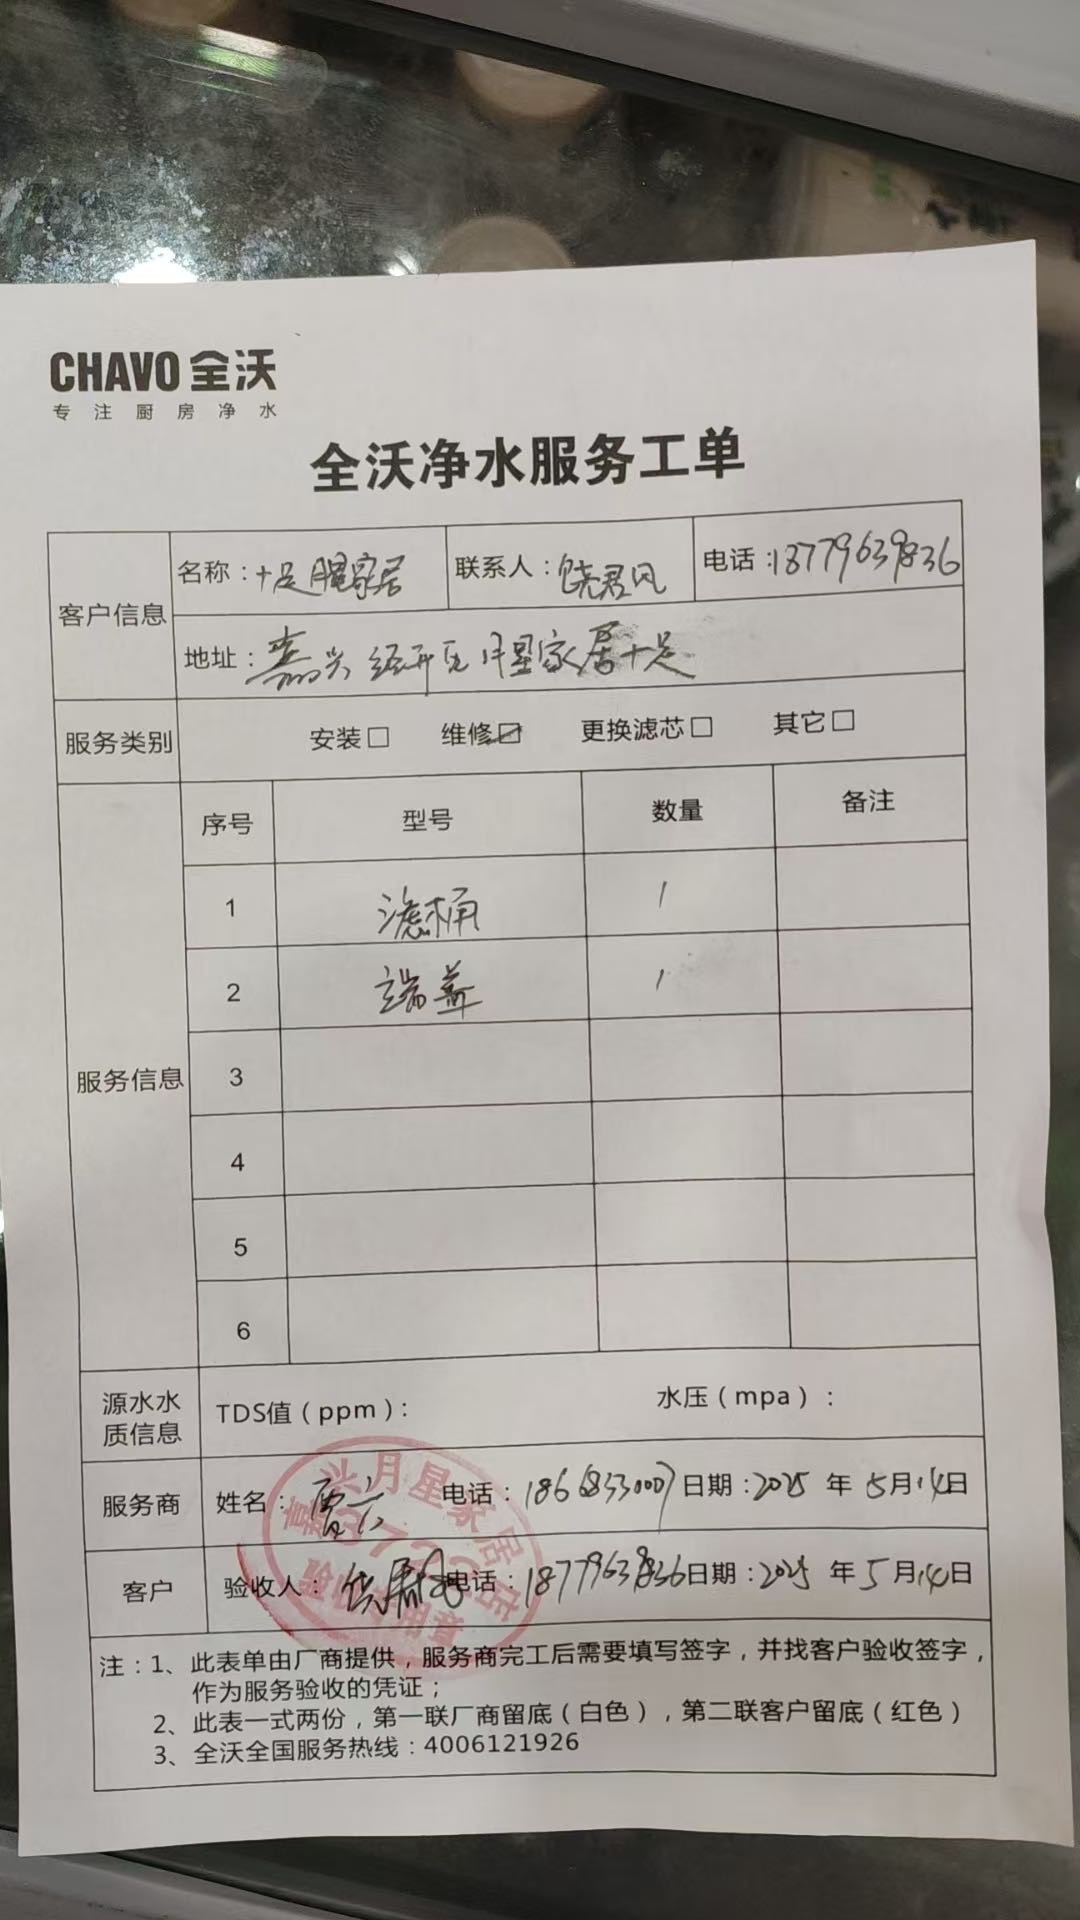 CHAVO 全沃
专注厨房净水
全沃净水服务工单
客户信息 名称：十足月星家居 联系人：饶君风 电话：18779639836
地址：嘉兴经开区月星家居十足
服务类别 安装□ 维修☑ 更换滤芯□ 其它□
服务信息 序号 型号 数量 备注
1 滤桶 1
2 端盖 1
3
4
5
6
源水水质信息 TDS值（ppm）： 水压（mpa）：
服务商 姓名：贾六 电话：18668330007 日期：2025年5月14日
客户 验收人： 电话：18779639836 日期：2025年5月14日
嘉兴月星家居
验收专用章
注：1、此表单由厂商提供，服务商完工后需要填写签字，并找客户验收签字，
作为服务验收的凭证；
2、此表一式两份，第一联厂商留底（白色），第二联客户留底（红色）
3、全沃全国服务热线：4006121926